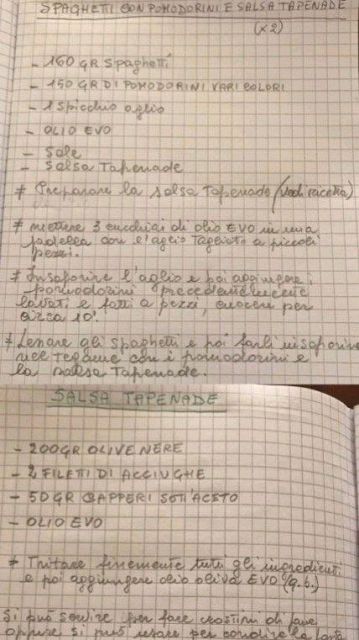 SPAGHETTI CON POMODORINI E SALSA TAPENADE
(x2)
- 160 GR Spaghetti
- 150 GR DI POMODORINI VARI COLORI
- 1 Spicchio aglio
- OLIO EVO
- Sale
- Salsa Tapenade
* Preparare la salsa Tapenade (vedi ricetta)
* mettere 3 cucchiai di olio EVO in una
padella con l'aglio tagliato a piccoli
pezzi.
* Insaporire l'aglio e poi aggiungere i
pomodorini precedentemente
lavati e fatti a pezzi, cuocere per
circa 10'.
* Lessare gli spaghetti e poi farli insaporire
nel tegame con i pomodorini e
la salsa Tapenade.
SALSA TAPENADE
- 200GR OLIVE NERE
- 2 FILETI DI ACCIUGHE
- 50 GR CAPPERI SOTT'ACETO
- OLIO EVO
* Tritare finemente tutti gli ingredienti
e poi aggiungere olio oliva EVO (q.b.)
Si può servire per fare crostini di pane
oppure si può usare per condire la pasta